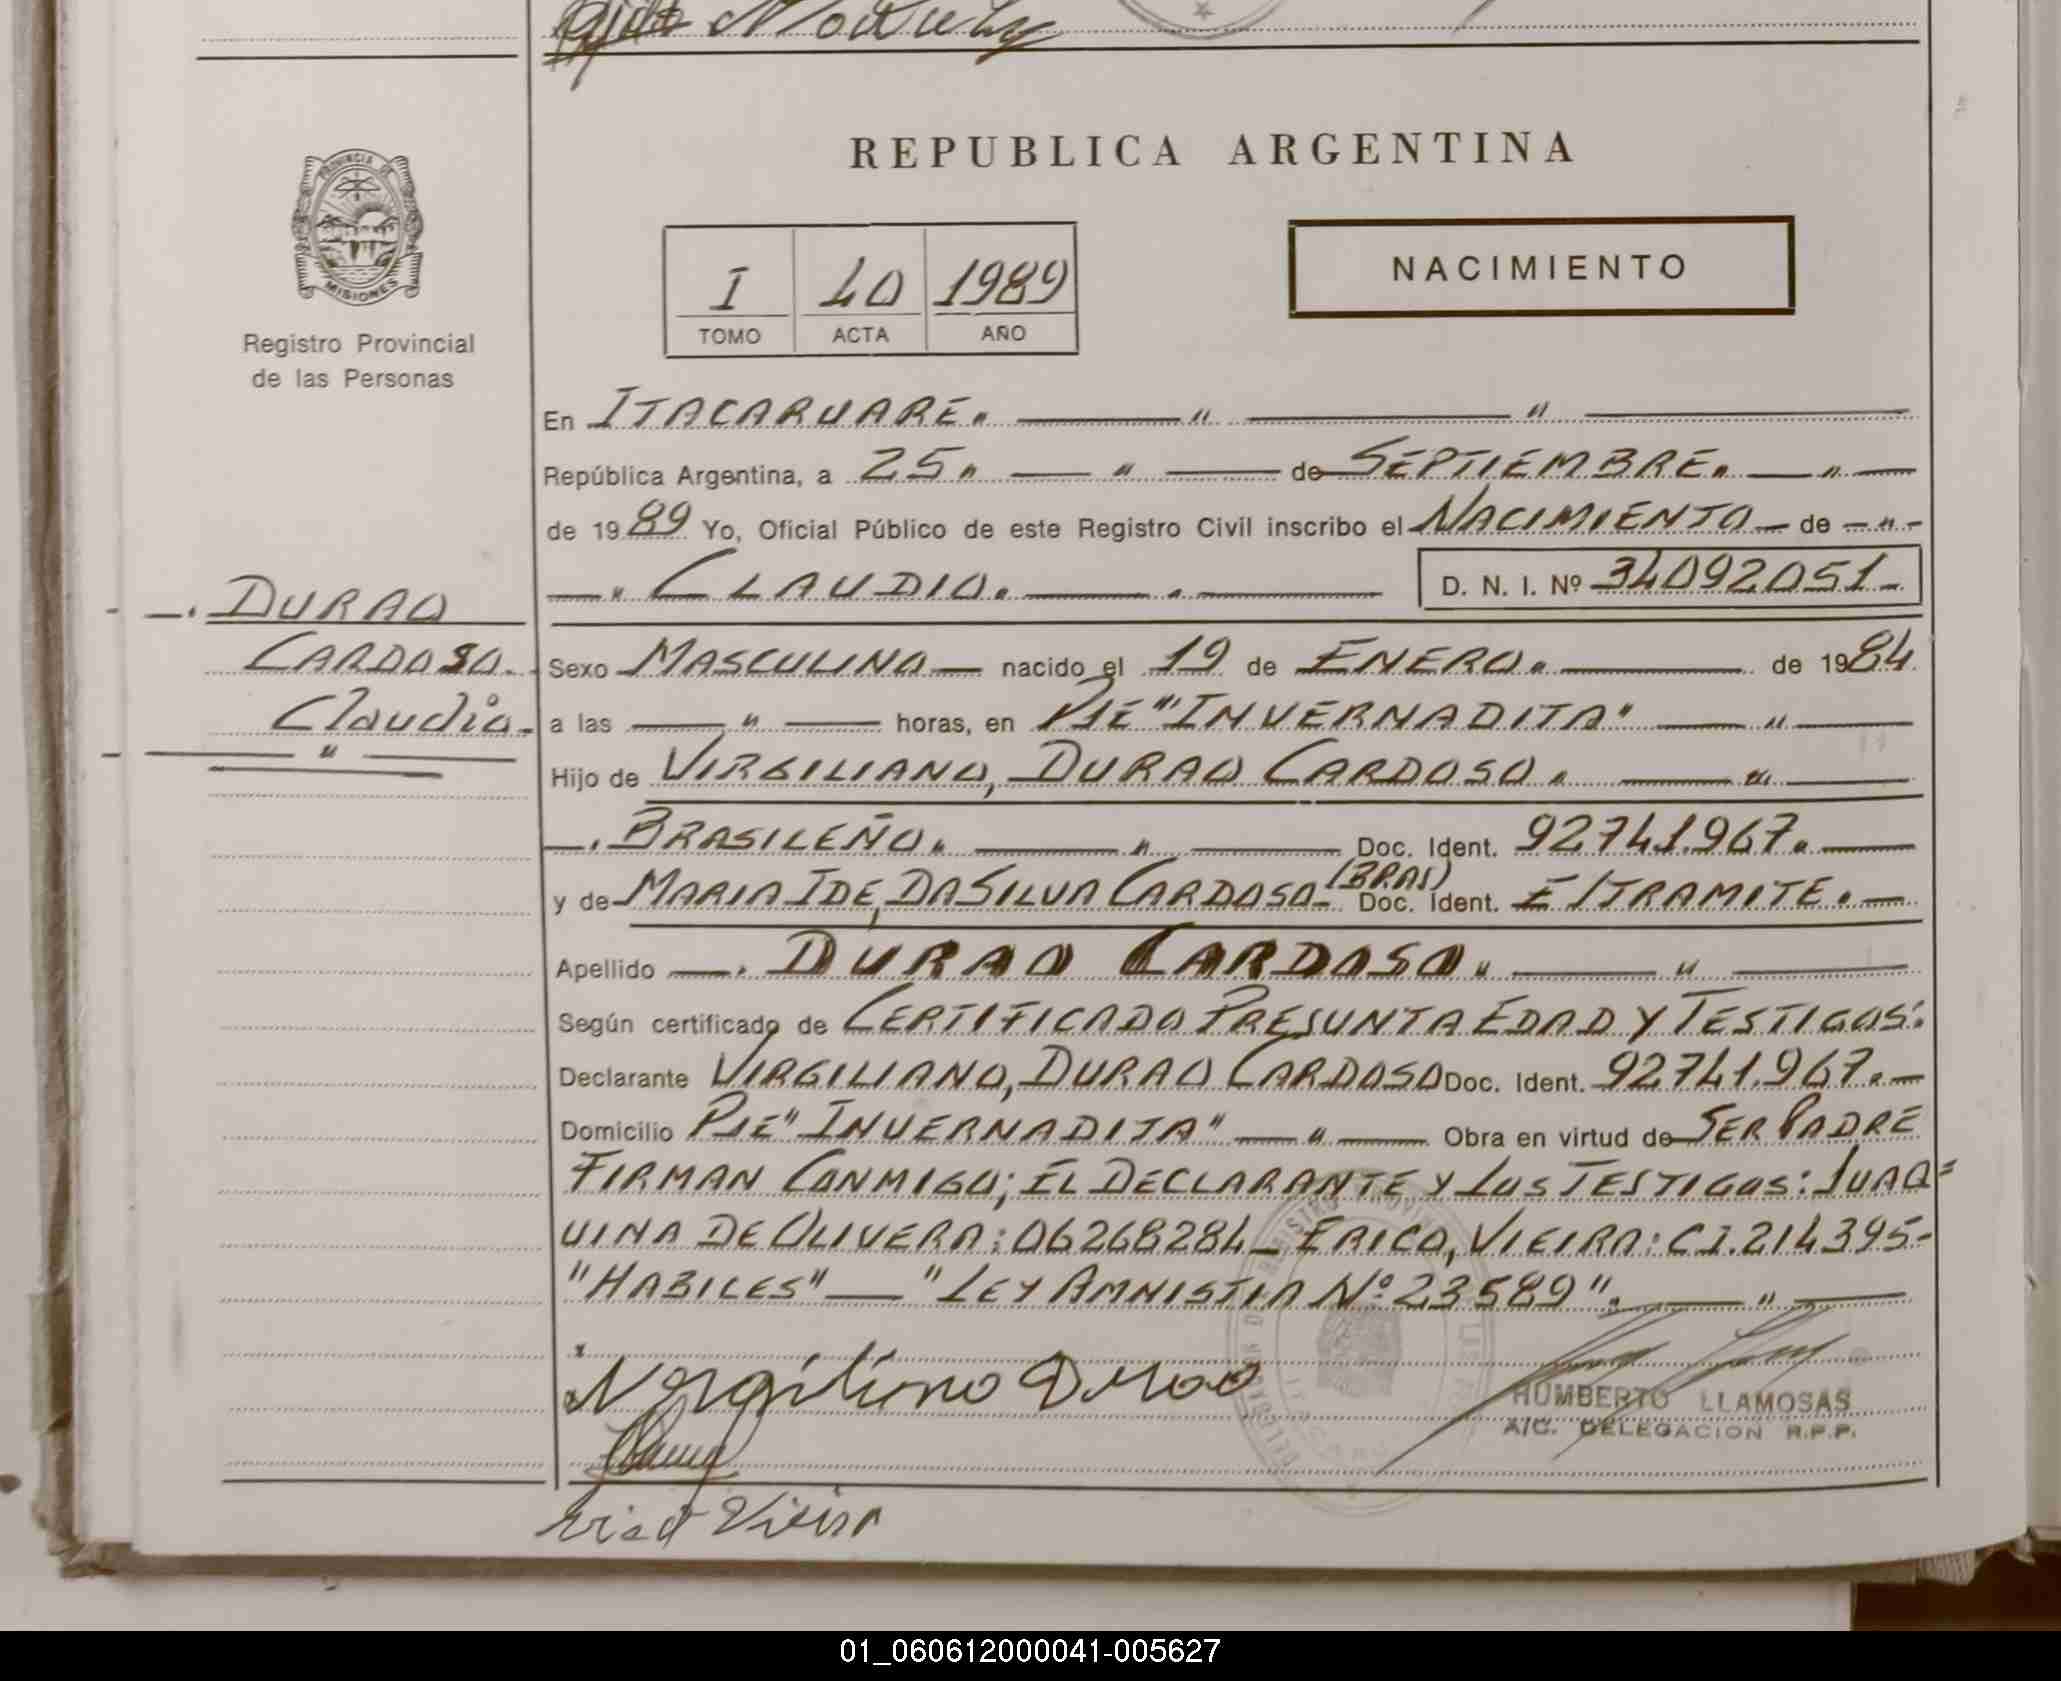 REPUBLICA ARGENTINA
PROVINCIA DE
MISIONES
Registro Provincial
de las Personas
I 40 1989
TOMO ACTA AÑO
NACIMIENTO
En ITACARUARE.
República Argentina, a 25 de SEPTIEMBRE
de 1989 Yo, Oficial Público de este Registro Civil inscribo el NACIMIENTO de
CLAUDIO. D. N. I. Nº 34092051
DURAO
CARDOSO
Claudio
Sexo MASCULINO nacido el 19 de ENERO de 1984
a las horas, en PJE "INVERNADITA"
Hijo de VIRGILIANO, DURAO CARDOSO
BRASILEÑO Doc. Ident. 92741.967.
y de MARIA IDE, DA SILVA CARDOSO (BRAS) Doc. Ident. E/TRAMITE.
Apellido DURAO CARDOSO
Según certificado de CERTIFICADO PRESUNTA EDAD Y TESTIGOS:
Declarante VIRGILIANO, DURAO CARDOSO Doc. Ident. 92741.967.
Domicilio PJE "INVERNADITA" Obra en virtud de SER PADRE
FIRMAN CONMIGO; EL DECLARANTE Y LOS TESTIGOS: JUAQ=
UINA DE OLIVERA: 06268284 - ERICO, VIEIRA: C.I. 214395-
"HABILES" — "LEY AMNISTIA Nº 23589".
Vergiliano Durao
HUMBERTO LLAMOSAS
A/C. DELEGACION R.P.P.
Vieira
01_060612000041-005627